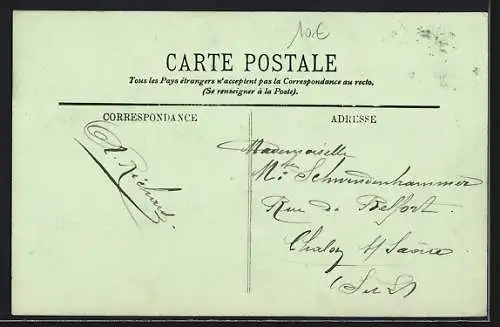 10€
CARTE POSTALE
Tous les Pays étrangers n'acceptent pas la Correspondance au recto.
(Se renseigner à la Poste).
CORRESPONDANCE
ADRESSE
Richard
Mademoiselle
M. Schwindenhammer
Rue de Belfort.
Chalon s/ Saône
(S et L)